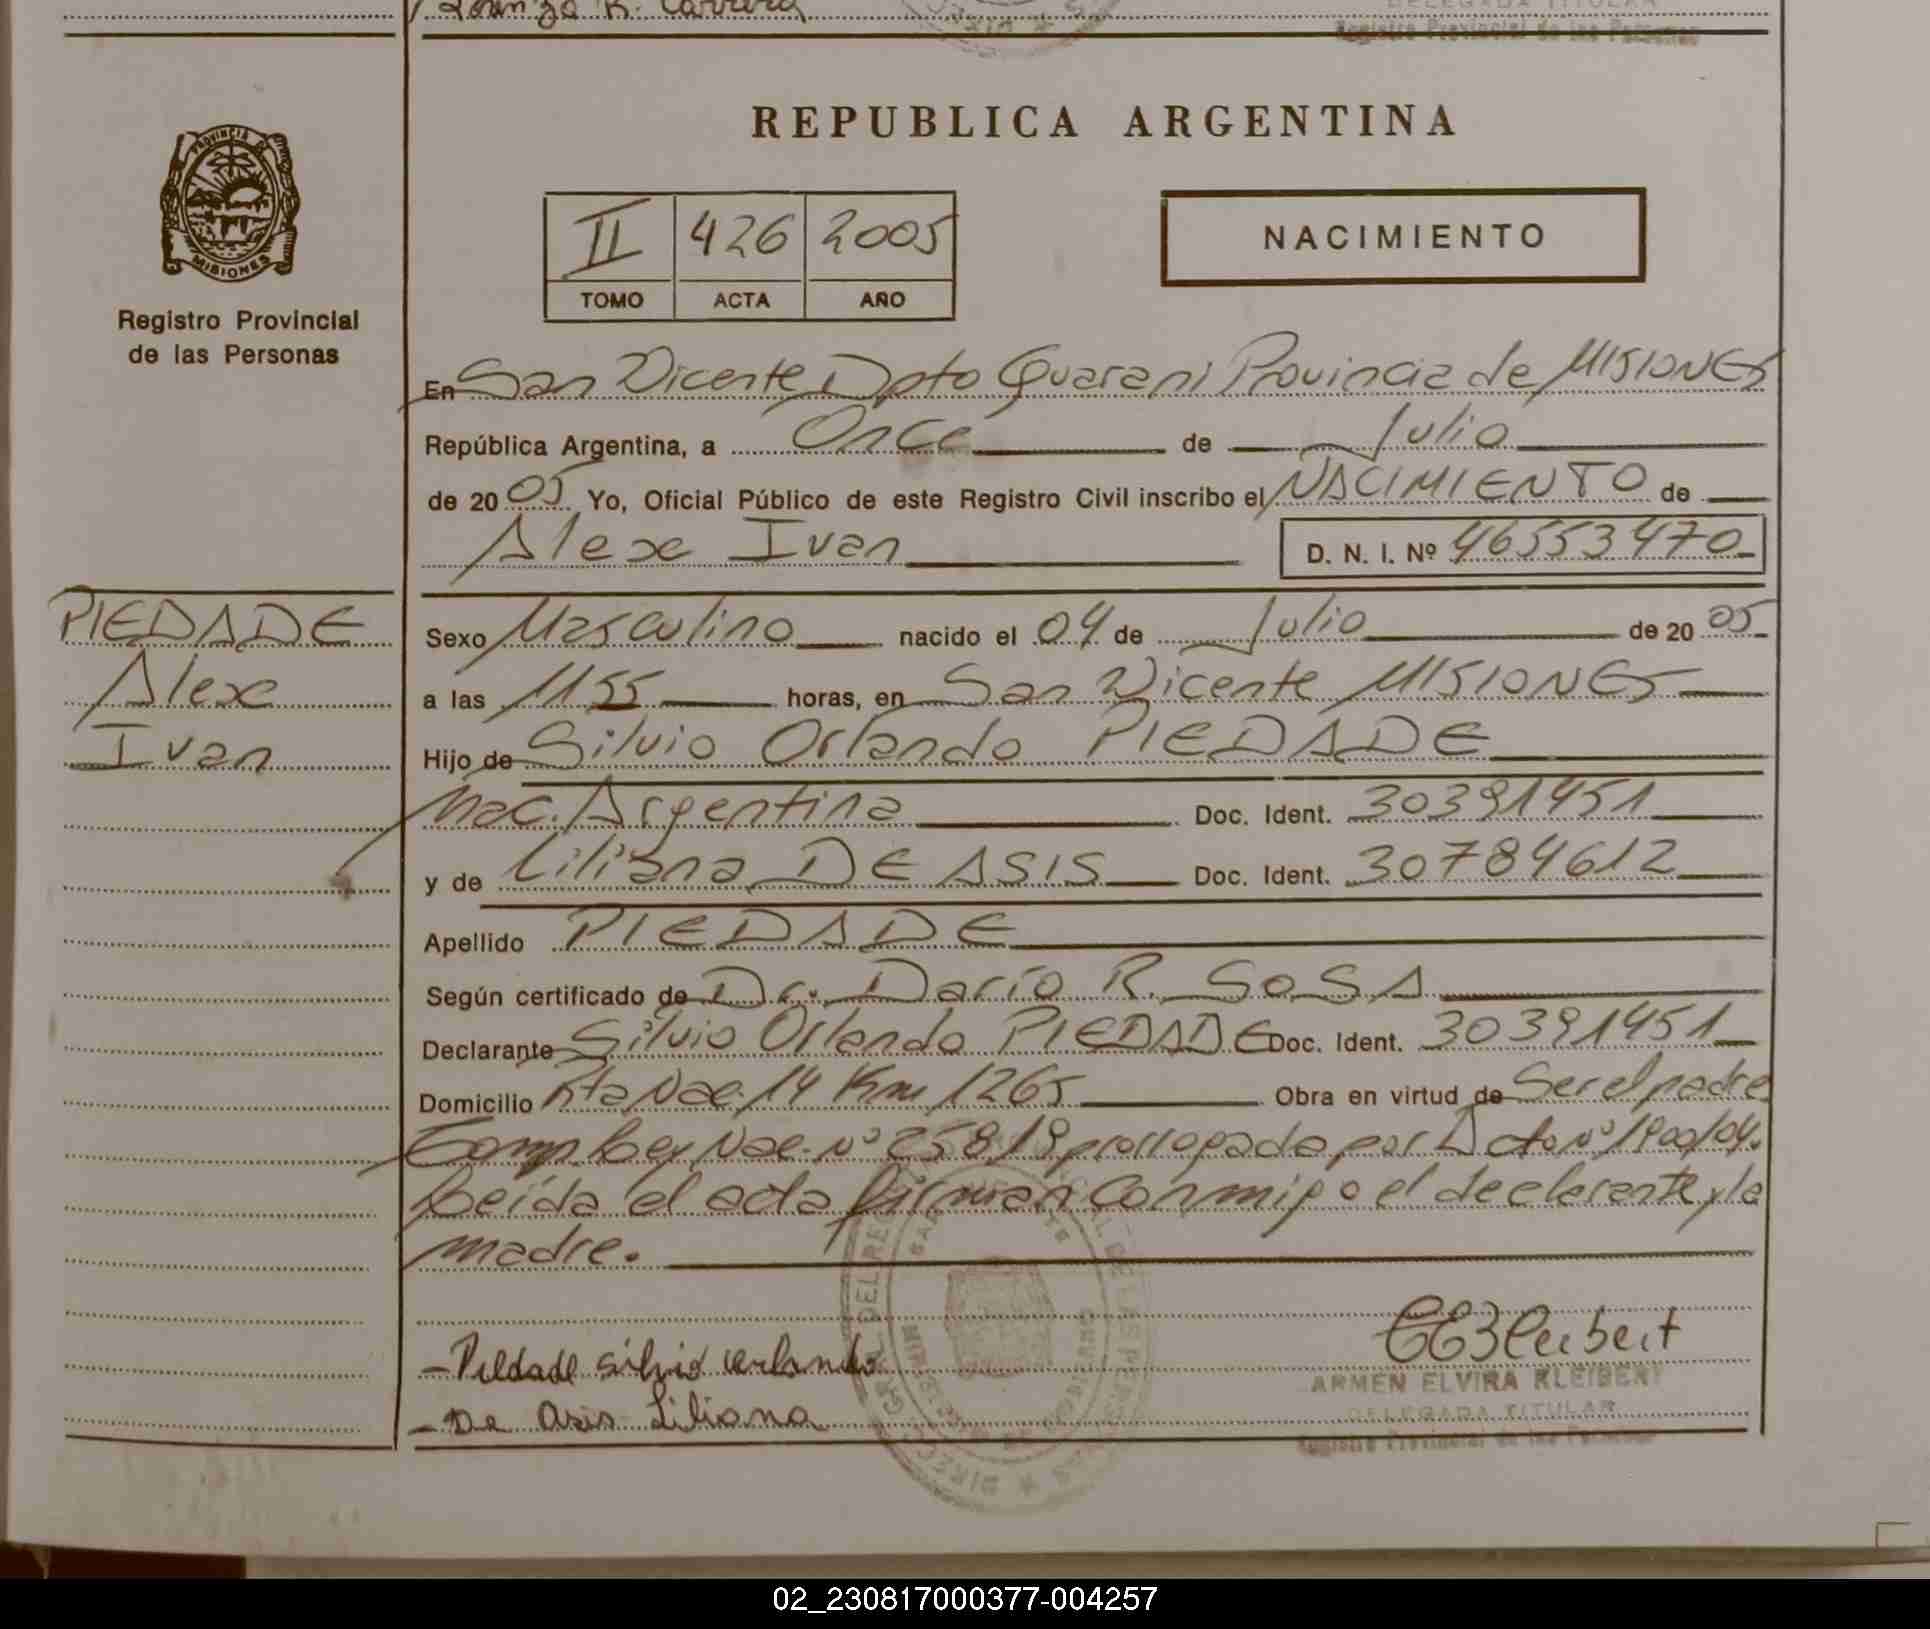 Lorenzo R. Carrera
DELEGADA TITULAR
Registro Provincial de las Personas
REPUBLICA ARGENTINA
PROVINCIA DE
MISIONES
Registro Provincial
de las Personas
II 426 2005
TOMO ACTA AÑO
NACIMIENTO
En San Vicente Dpto Guarani Provincia de MISIONES
República Argentina, a Once de Julio
de 2005 Yo, Oficial Público de este Registro Civil inscribo el NACIMIENTO de
Alexe Ivan D. N. I. Nº 46553470
PIEDADE
Alexe
Ivan
Sexo Masculino nacido el 04 de Julio de 2005
a las 1155 horas, en San Vicente MISIONES
Hijo de Silvio Orlando PIEDADE
Nac. Argentina Doc. Ident. 30391451
y de Liliana DE ASIS Doc. Ident. 30784612
Apellido PIEDADE
Según certificado de Dr. Darío R. SOSA
Declarante Silvio Orlando PIEDADE Doc. Ident. 30391451
Domicilio Rta Nac. 14 Km 1265 Obra en virtud de Ser el padre
Comp. Ley Nac. Nº 25819 prorrogada por Dcto Nº 1900/04.
Leída el acta firman conmigo el declarante y la
madre.
- Piedade silvio orlando
- De Asis Liliana
CEKleibert
ARMEN ELVIRA KLEIBERT
DELEGADA TITULAR
Registro Provincial de las Personas
02_230817000377-004257